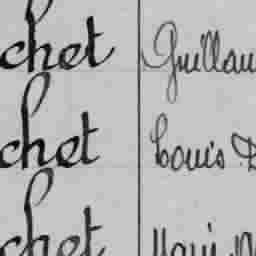 chet Guillau
chet Louis D
chet